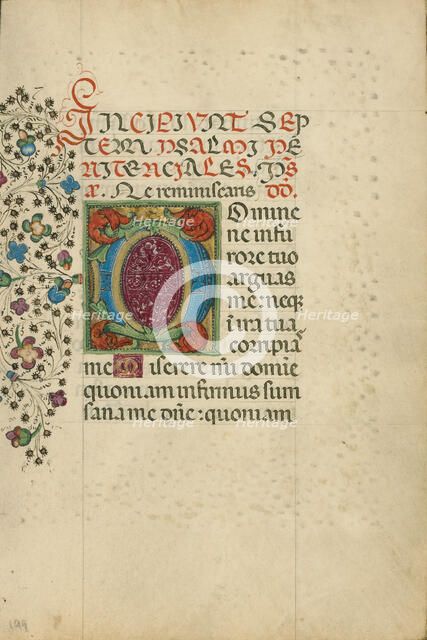 INCIPIVNT SEP
TEM PSALMI PE
NITENCIALES. PS
Ne reminiscaris DD.
Domine
ne in fu
rore tuo
arguas
me neq
i ira tua
coripia
me Miserere mei domie
quoniam infirmus sum
sana me dne : quoniam
Heritage
Heritage
Heritage
Heritage
Heritage
Heritage
199